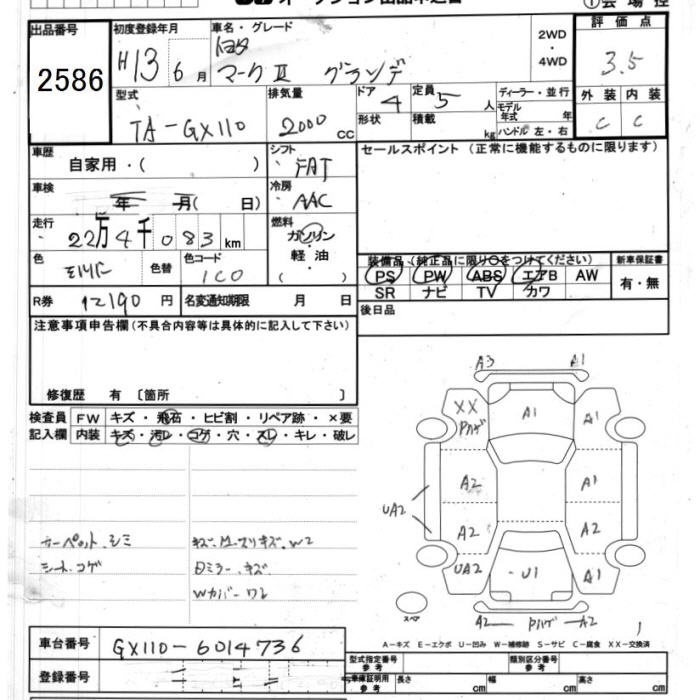 ① 会 場 控
出品番号 初度登録年月 車名・グレード 2WD ・ 4WD 評価点
2586 H13 6月 トヨタ マークⅡ グランデ 3.5
型式 排気量 ドア 4 定員 5人 ディーラー・並行 外装 内装
TA-GX110 2000 cc 形状 積載 kg モデル年式 年 ハンドル 左・右 C C
車歴 自家用・( ) シフト FAT セールスポイント (正常に機能するものに限ります)
車検 年 月( 日) 冷房 AAC
走行 22万4千083km 燃料 ガソリン・軽・油・( )
色 色替 色コード 1C0 装備品 (純正品に限り○をつけてください) 新車保証書
PS PW ABS エアB AW 有・無
R券 12190円 名変通知期限 月 日 SR ナビ TV カワ
注意事項申告欄(不具合内容等は具体的に記入して下さい) 後日品
修復歴 有 〔箇所 〕
検査員 FW キズ・飛石・ヒビ割・リペア跡・×要
記入欄 内装 キズ・汚レ・コゲ・穴・スレ・キレ・破レ
A3 A1
XX A1 A1
Pハゲ
A2 A1
UA2
A2 A2
UA2 U1 A1
カーペット シミ
シート コゲ
Dミラー キズ
Wカバー ワレ
スペア A2 Pハゲ A2
A-キズ E-エクボ U-凹み W-補修跡 S-サビ C-腐食 XX-交換済
車台番号 GX110-6014736
登録番号 型式指定番号 参考 類別区分番号 参考
車庫証明用 参考 長さ cm 幅 cm 高さ cm